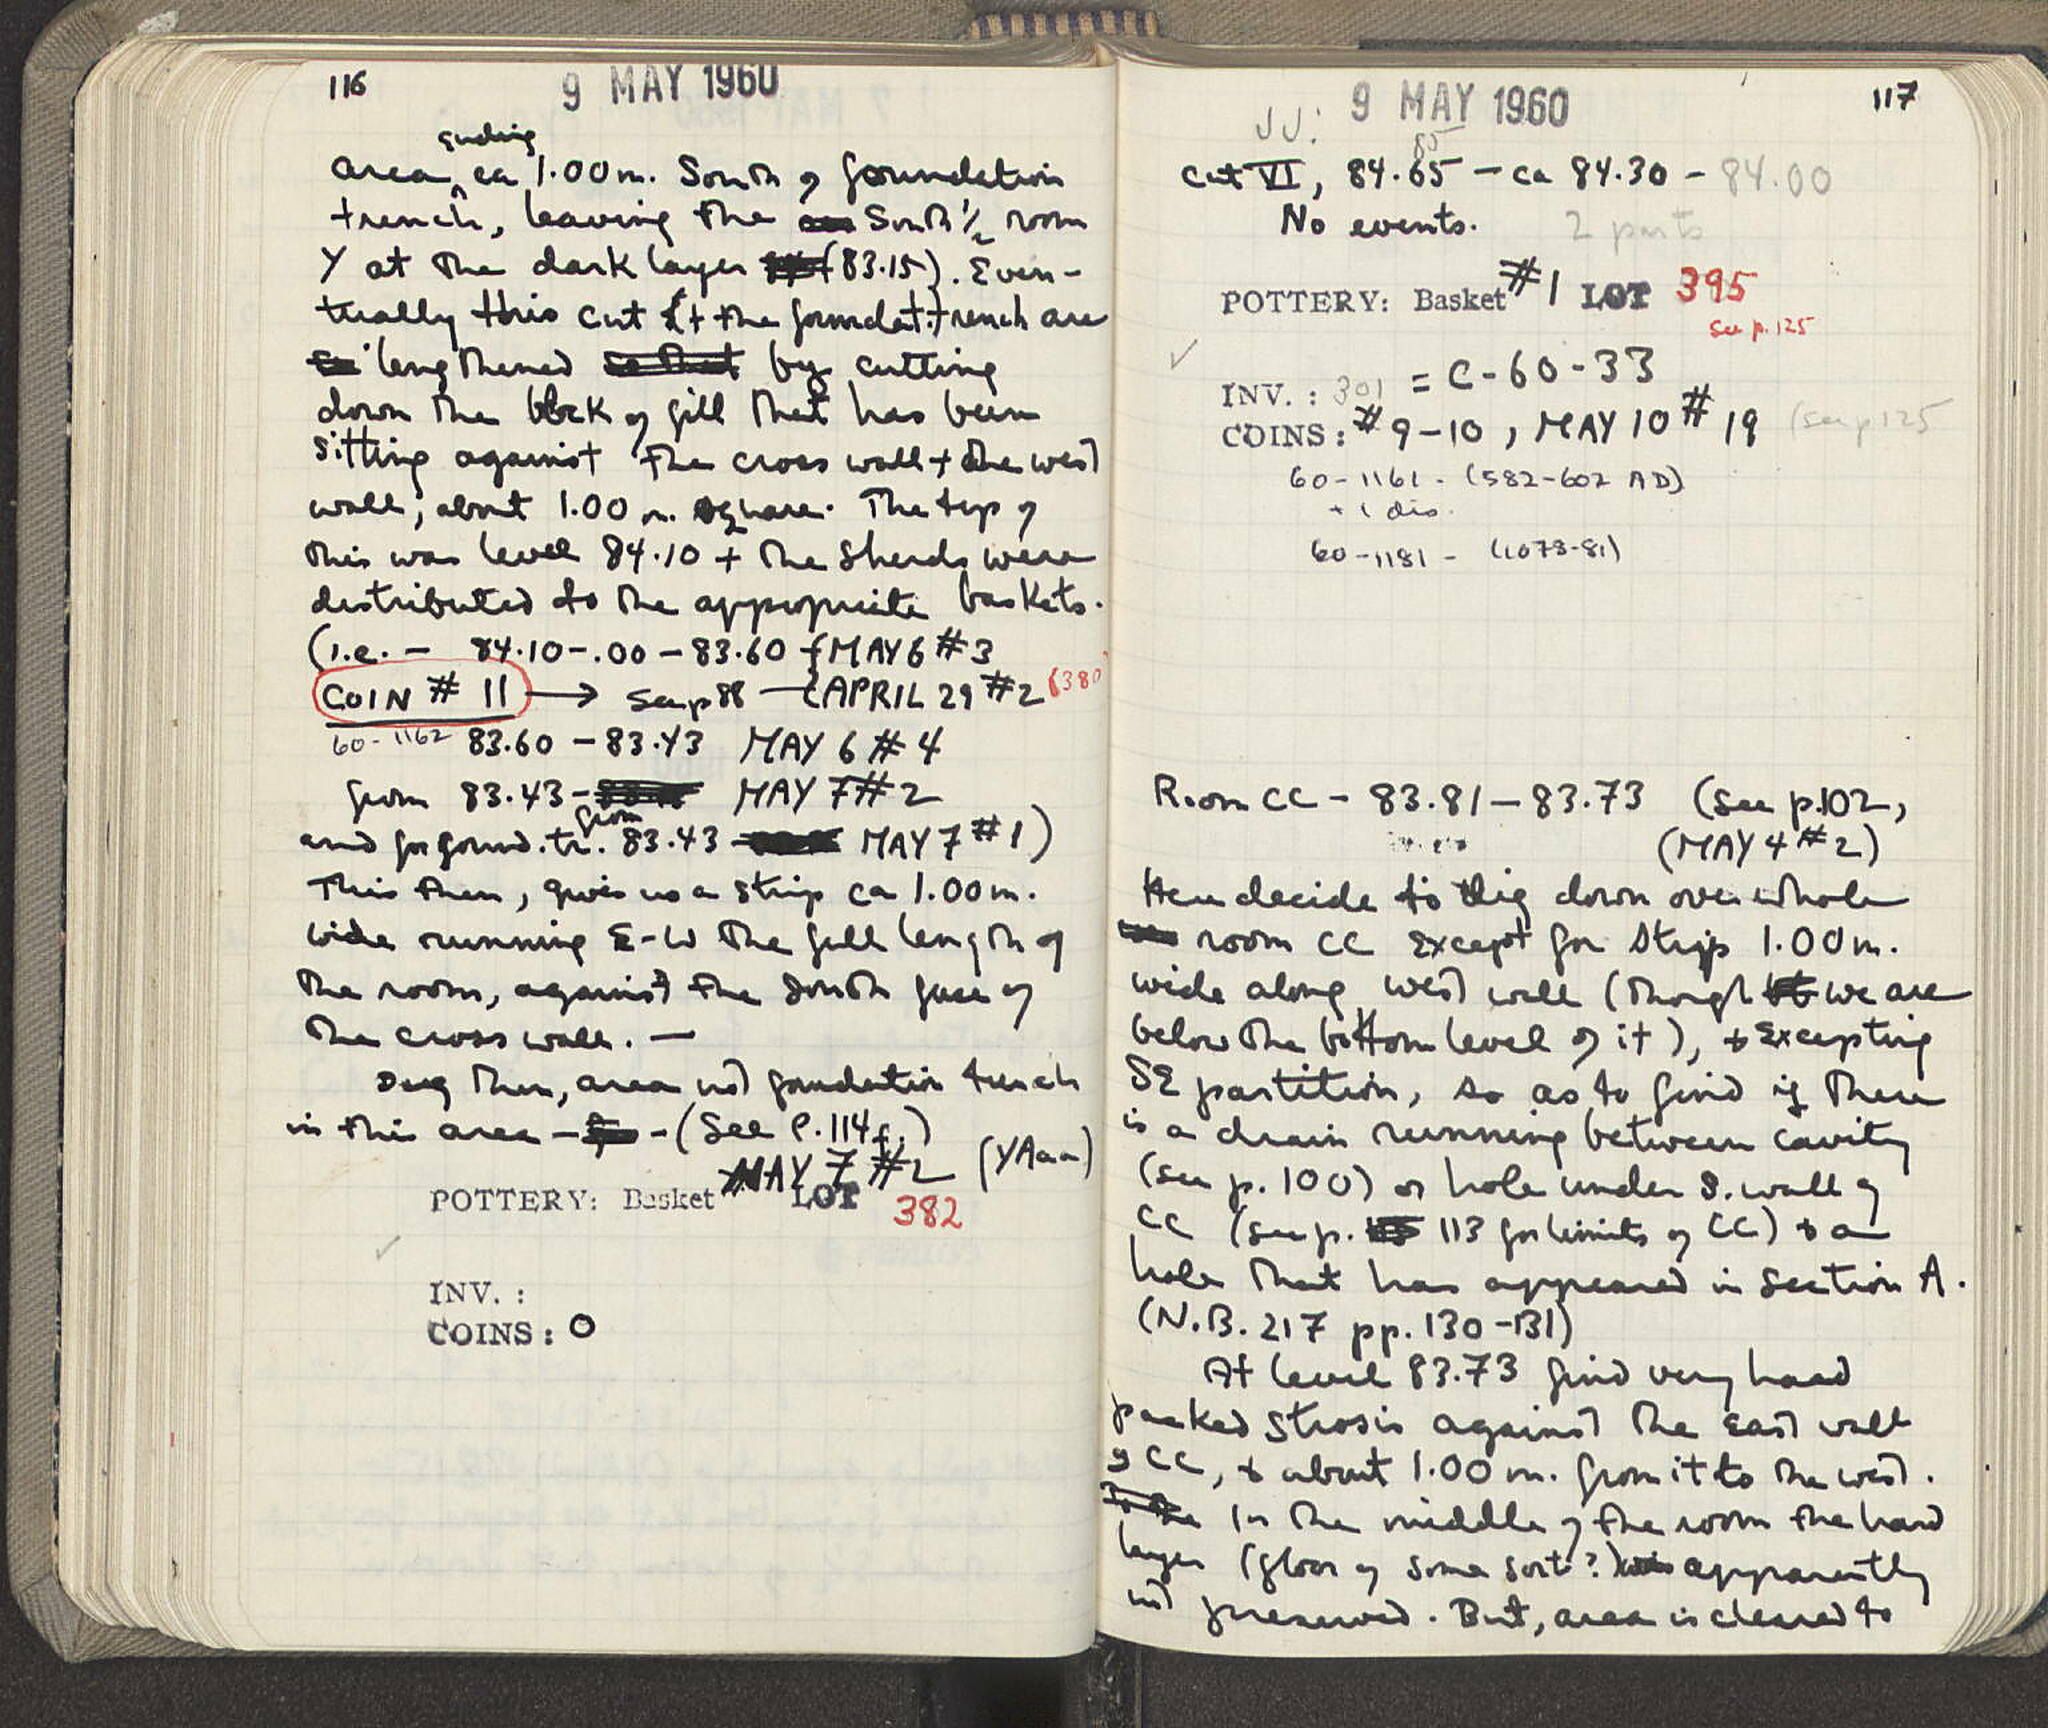 116
9 MAY 1960
ending
area ca 1.00 m. South of foundation
trench, leaving the South 1/2 room
Y at the dark layer (83.15). Even-
tually this cut + the foundat. trench are
lengthened by cutting
down the block of fill that has been
sitting against the cross wall + the west
wall, about 1.00 m. square. The top of
this was level 84.10 + the sherds were
distributed to the appropriate baskets.
(i.e. - 84.10-.00 - 83.60 { MAY 6 #3
COIN # 11 → See p 88 { APRIL 29 #2 (380)
60-1162 83.60 - 83.43 MAY 6 # 4
from 83.43 - MAY 7 # 2
and for found. tr. from 83.43 - MAY 7 #1)
This then, gives us a strip ca 1.00 m.
wide running E-W the full length of
the room, against the South face of
the cross wall. —
Dug then, area not foundation trench
in this area - - (See P. 114 f.)
POTTERY: Basket MAY 7 #2 LOT 382 (YAaa)
INV. :
COINS: 0
117
JJ: 9 MAY 1960
85
Cut VI, 84.65 - ca 84.30 - 84.00
No events. 2 parts
POTTERY: Basket #1 LOT 395
See p. 125
INV. : 301 = C-60-33
COINS: # 9-10, MAY 10 # 19 (see p 125
60-1161 - (582-602 AD)
+ 1 dis.
60-1181 - (1078-81)
Room CC - 83.81 - 83.73 (see p. 102,
(MAY 4 #2)
Here decide to dig down over whole
room CC except for strip 1.00 m.
wide along west wall (though we are
below the bottom level of it), + excepting
SE partition, so as to find if there
is a drain running between cavity
(see p. 100) or hole under S. wall of
CC (see p. 113 for limits of CC) + a
hole that has appeared in Section A.
(N.B. 217 pp. 130-131)
At level 83.73 find very hard
packed strosis against the East wall
of CC, + about 1.00 m. from it to the west.
In the middle of the room the hard
layer (floor of some sort?) apparently
not preserved. But, area is cleared to